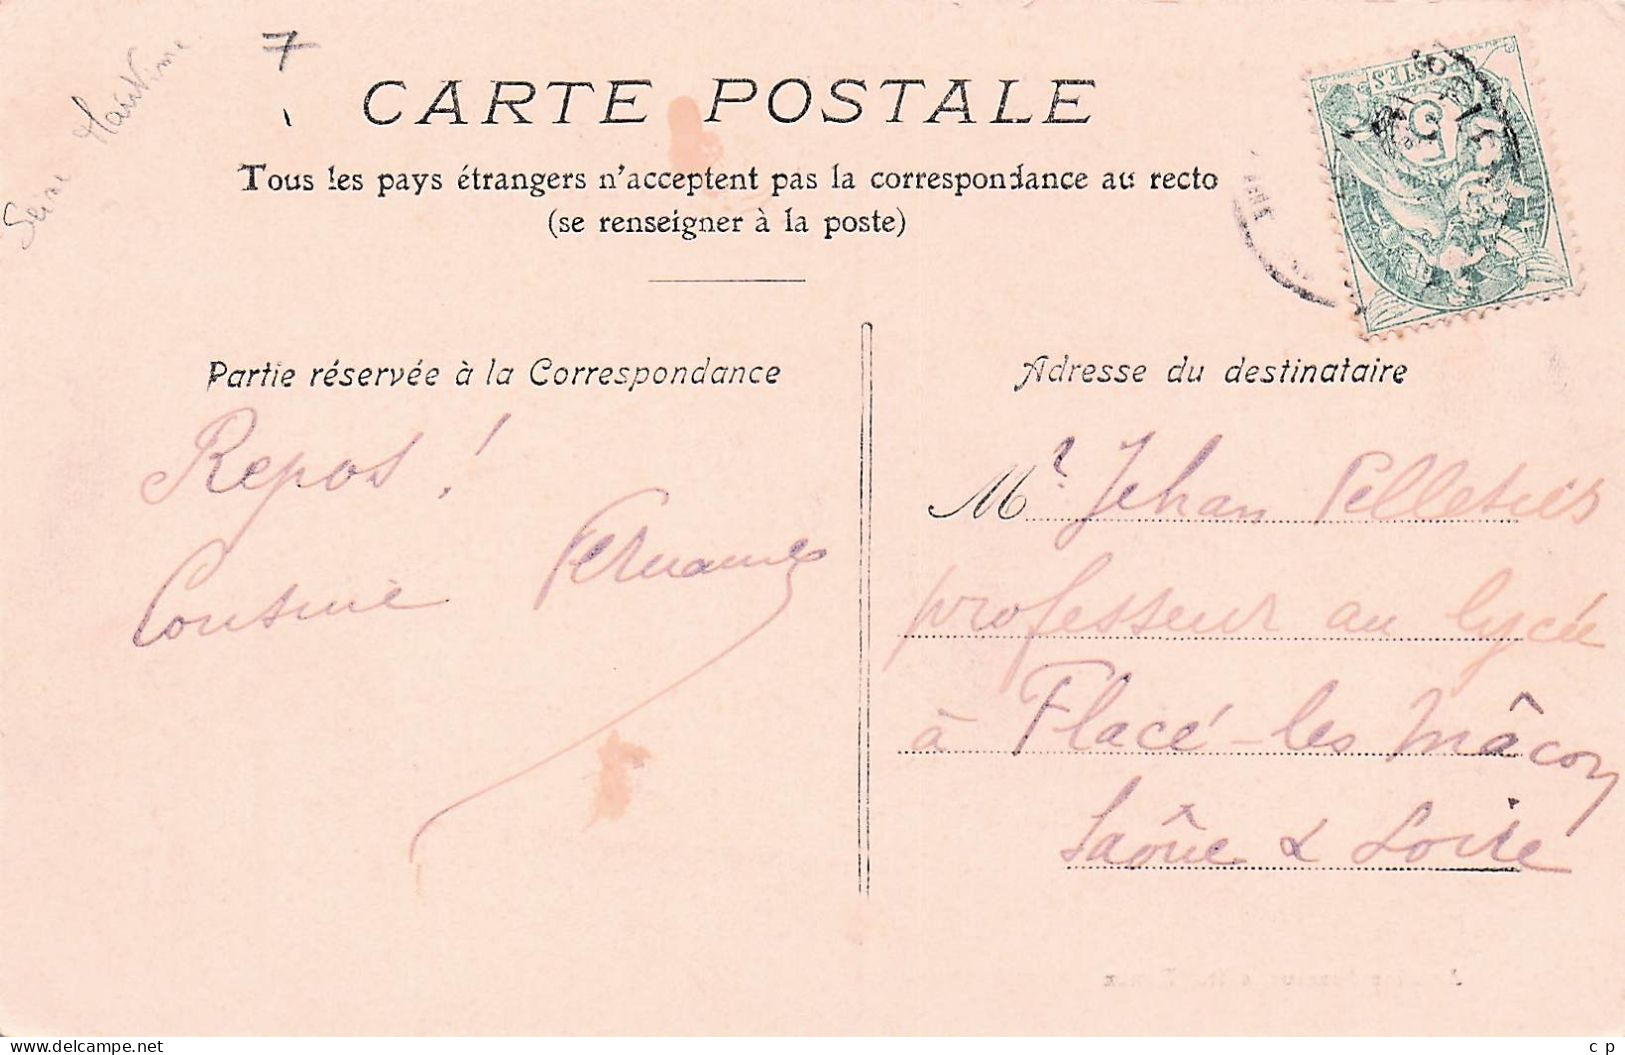 7
Seine Maritime
CARTE POSTALE
Tous les pays étrangers n'acceptent pas la correspondance au recto
(se renseigner à la poste)
POSTES
5
Partie réservée à la Correspondance
Repos !
Cousine Fernande
Adresse du destinataire
Mr Jehan Pelletier
professeur au lycée
à Flacé-les Mâcon
Saône & Loire
www.delcampe.net
c p